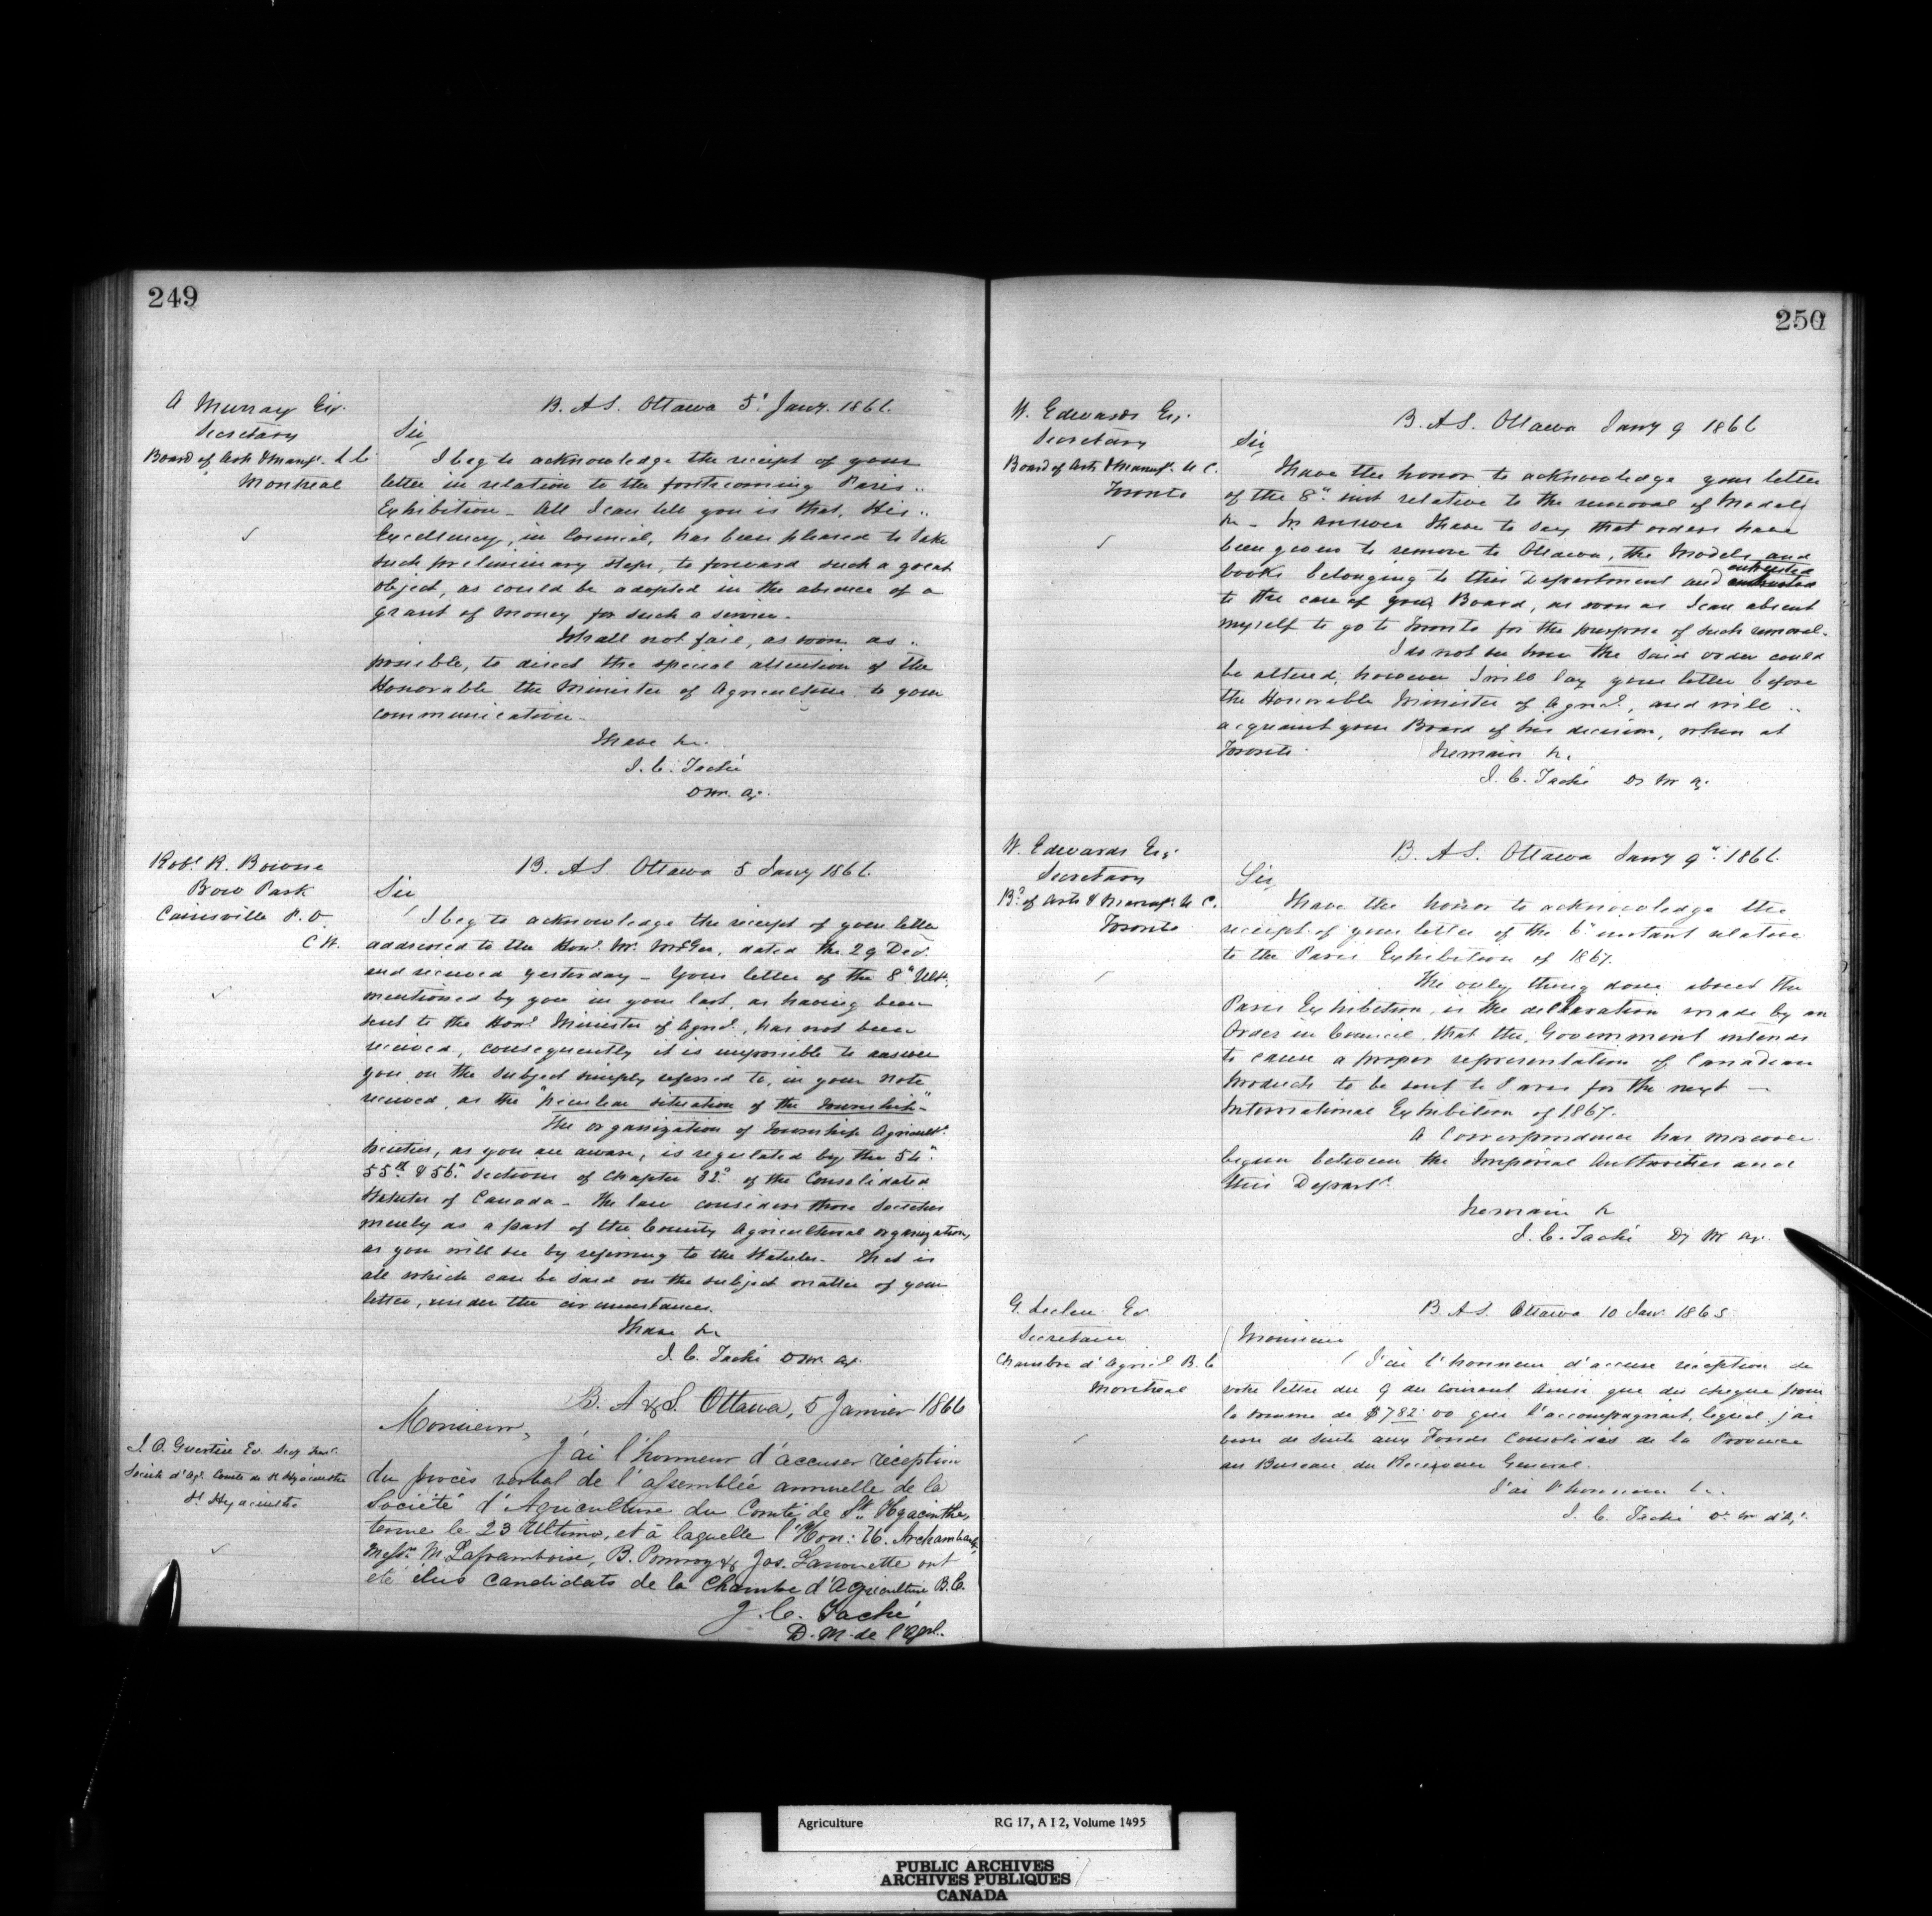 249
A Murray Esq.
Secretary
Board of Arts & Manufs. L C
Montreal
B. A S. Ottawa 5t Jany. 1866.
Sir
I beg to acknowledge the receipt of your
letter in relation to the forthcoming Paris
Exhibition - All I can tell you is that, His
Excellency, in Council, has been pleased to take
such preliminary steps, to forward such a great
object, as could be adopted in the absence of a
grant of money for such a service.
I shall not fail, as soon as
possible, to direct the special attention of the
Honorable the Minister of Agriculture to your
communication.
I have &c.
J. C. Taché
D M. Ag.
Robt. R. Bowne
Bow Park
Cainsville P. O.
C W.
B. A S. Ottawa 5 Jany 1866.
Sir
I beg to acknowledge the receipt of your letter
addressed to the Honl. Mr. McGee, dated the 29 Dec.
and received yesterday - Your letter of the 8" Ult.
mentioned by you in your last, as having been
sent to the Honl. Minister of Agricl., has not been
received, consequently it is impossible to answer
you on the subject simply referred to, in your note
received, as the "peculiar situation of the Township"
The organization of Township Agricultl.
Societies, as you are aware, is regulated by the 54"
55th & 56" Sections of Chapter 32d of the Consolidated
Statutes of Canada - The law considers those Societies
merely as a part of the County Agricultural organization,
as you will see by referring to the Statutes. That is
all which can be said on the subject matter of your
letter, under the circumstances.
I have &c
J. C. Taché D M. Ag.
J. O. Guertin Er. Secy Tresr.
Société d'Agr. Comté de St Hyacinthe
St Hyacinthe
B. A & S. Ottawa, 5 Janvier 1866
Monsieur,
J'ai l'honneur d'accuser réception
du procès verbal de l'assemblée annuelle de la
Société d'Agriculture du Comté de St. Hyacinthe,
tenue le 23 Ultimo, et à laquelle l'Hon: Archambault,
Messrs M Laframboise, B. Pomroy & Jos. Lanouette ont
été élus candidats de la Chambre d'Agriculture B.C.
J. C. Taché
D. M. de l'Agl.
250
W. Edwards Esq.
Secretary
Board of Arts & Manufs. U C.
Toronto
B. A S. Ottawa Jany 9 1866
Sir
I have the honor to acknowledge your letter
of the 8" inst relative to the removal of Models
&c - In answer I have to say that orders have
been given to remove to Ottawa, the Models and
books belonging to this Department and entrusted
to the care of your Board, as soon as I can absent
myself to go to Toronto for the purpose of such removal.
I do not see how the said order could
be altered, however I will lay your letter before
the Honorable Minister of Agricl., and will
acquaint your Board of his decision, when at
Toronto.
I remain &c.
J. C. Taché Dy M Ag.
W. Edwards Esq.
Secretary
Bd. of Arts & Manufs. U C.
Toronto
B. A S. Ottawa Jany 9" 1866.
Sir,
I have the honor to acknowledge the
receipt of your letter of the 6" instant relative
to the Paris Exhibition of 1867.
The only thing done about the
Paris Exhibition, is the declaration made by an
Order in Council, that the Government intends
to cause a proper representation of Canadian
products to be sent to Paris for the next
International Exhibition of 1867.
A Correspondence has moreover
begun between the Imperial Authorities and
this Depart.
I remain &c
J. C. Taché Dy M Ag.
G. Leclere Er
Secretaire
Chambre d'Agricl. B. C
Montreal
B. A S. Ottawa 10 Jan. 1865
Monsieur
J'ai l'honneur d'accuser réception de
votre lettre du 9 du courant ainsi que du cheque pour
la somme de $782.00 qui l'accompagnait, lequel j'ai
versé de suite aux Fonds Consolidés de la Province
au Bureau du Receveur General.
J'ai l'honneur &c.
J. C. Taché D. M d'A.
Agriculture
RG 17, A I 2, Volume 1495
PUBLIC ARCHIVES
ARCHIVES PUBLIQUES
CANADA